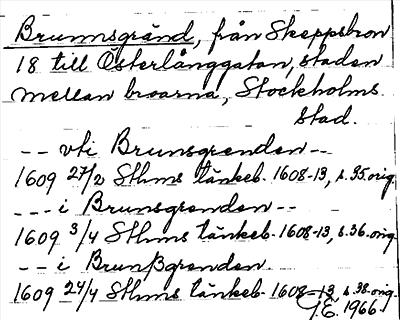 Brunnsgränd, från Skeppsbron
18 till Österlånggatan, staden
mellan broarna, Stockholms
stad.
-- vti Brunsgrenden --
1609 27/2 Sthms tänkeb. 1608-13, s.35 orig.
--- i Brunsgrenden --
1609 3/4 Sthms tänkeb. 1608-13, s.36 orig.
-- i Brunßgrenden.
1609 24/4 Sthms tänkeb. 1608-13, s.38 orig.
G.E. 1966.